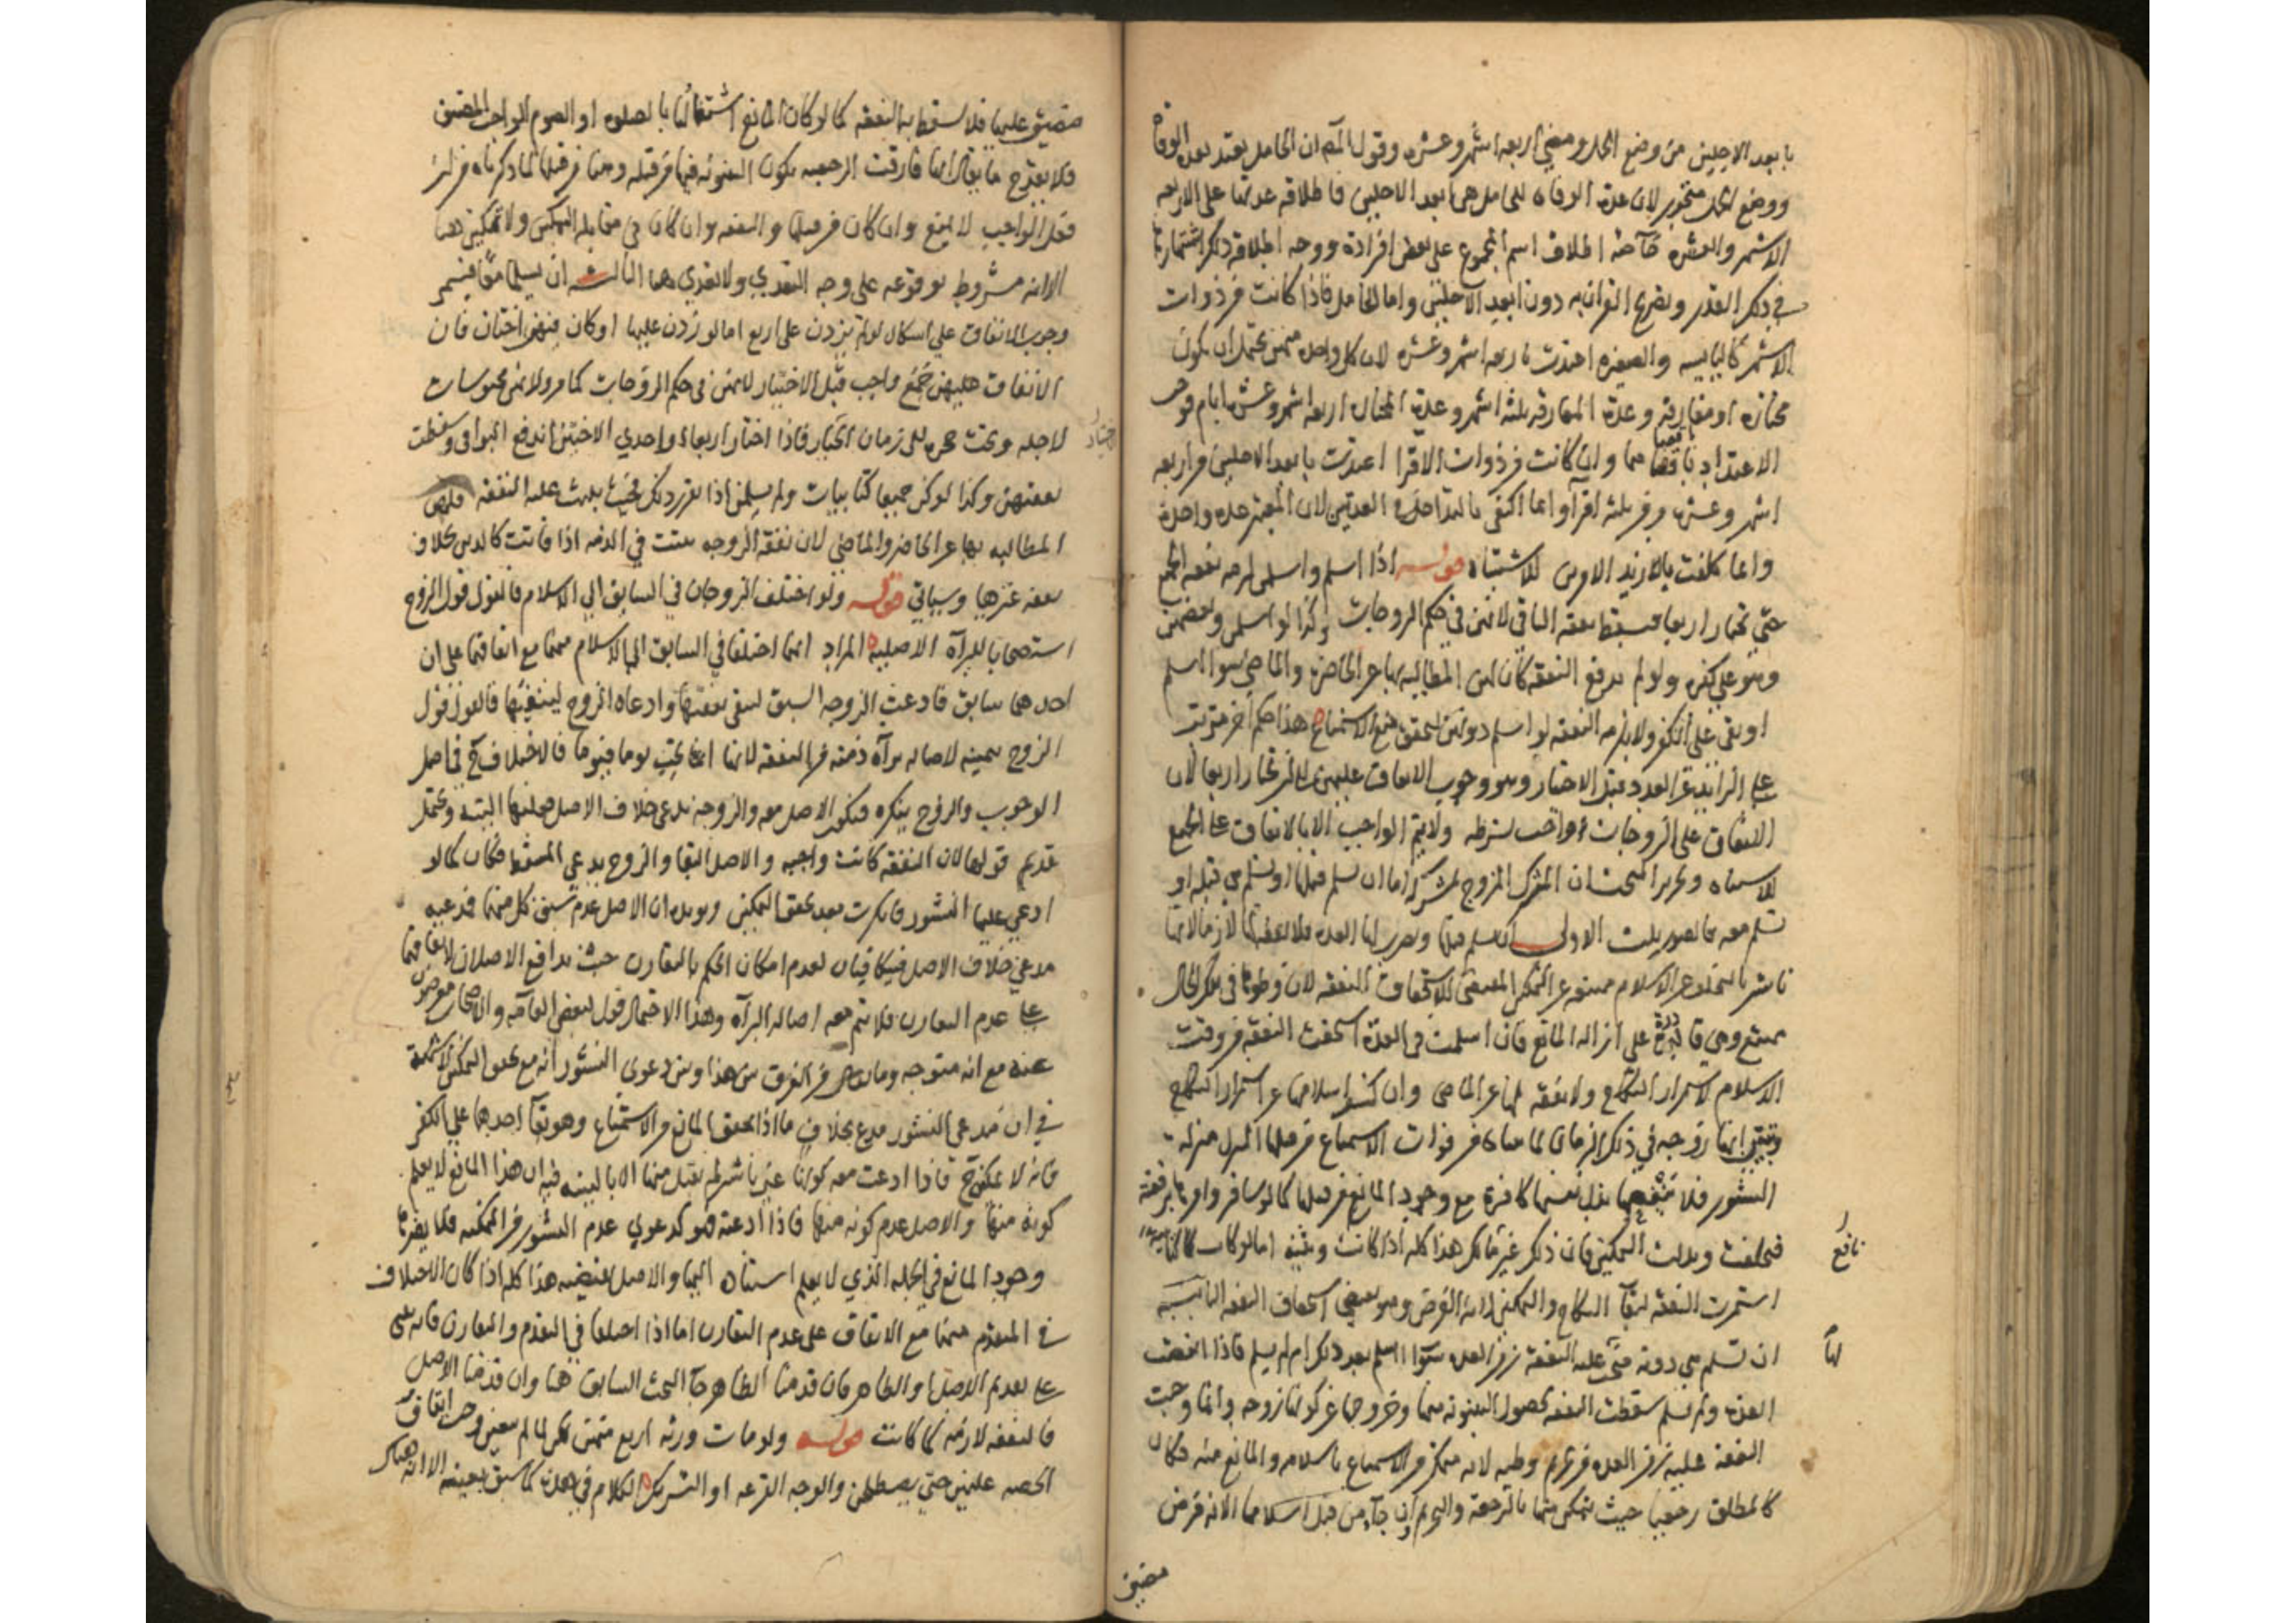 بابعد الاجلين من وضع الحمل ومضي اربعة اشهر وعشرة وقول المص ان الحامل يعتد بعدة الوفاة
ووضع الحمل متجوز لان عدة الوفاة للحامل هي ابعد الاجلين فاطلاقه عدتها على الاربعة
الاشهر والعشرة خاصة اطلاق اسم المجموع على بعض افراده ووجه اطلاقه ذلك اشتهارها
في ذلك القدر وتصريح القران به دون ابعد الاجلين واما الحامل فاذا كانت من ذوات
الاشهر كاليايسة والصغيرة اعتدت باربعة اشهر وعشرة لان كل واحدة منهن يحتمل ان يكون
مختارة او مفارقة وعدة المفارقة ثلثة اشهر وعدة المختارة اربعة اشهر وعشرة ايام فوجب
الاعتداد باقصاهما وان كانت من ذوات الاقرا اعتدت بابعد الاجلين من اربعة
اشهر وعشرة ومن ثلثة اقرآ وانما اكتفى بالتداخل في العدتين لان المعتبر عدة واحدة
وانما كلفت بالازيد الاوجب للاشتباه قوله اذا اسلم واسلمن لزمه نفقة الجميع
حتى يختار اربعا فتسقط نفقة الباقي لانهن في حكم الزوجات وكذا لو اسلمن او بعضهن
وهو على كفره ولو لم يدفع النفقة كان لهن المطالبة بها عن الحاضر والماضي سواء اسلم
او بقي على الكفر ولا يلزمه النفقة لو اسلم دونهن لتحقق منع الاستمتاع هذا حكم اخر مترتب
على الزايد عن العدد قبل الاختيار وهو وجوب الانفاق عليهن الى ان يختار اربعا لان
الانفاق على الزوجات واجب بشرطه ولا يتم الواجب الا بالانفاق على الجميع
للاشتباه وتحرير المبحث ان المشرك المتزوج بمشركة اما ان يسلم قبلها او تسلم هي قبله او
تسلم معه فالصور ثلث الاولى ان يسلم قبلها وتصر الى العدة فلا نفقة لها لازما لانها
ناشز بالتخلف عن الاسلام ممتنعة عن التمكين المقتضي لاستحقاق النفقة لان وطوها في تلك الحال
ممتنع وهي قادرة على ازالة المانع فان اسلمت في العدة استحقت النفقة من وقت
الاسلام لاستمرار النكاح ولا نفقة لها عن الماضي وان كشف اسلامها عن استمرار النكاح
وتبين انها زوجة في ذلك الزمان لما مضى من فوات الاستمتاع من قبلها المنزل منزلة
النشوز فلا ينفعها بذل نفسها كافرة مع وجود المانع من قبلها كما لو سافر وامرها برفعته
فتخلفت وبذلت التمكين فان ذلك غير نافع هذا كله اذا كانت وثنية اما لو كانت كتابية
استمرت النفقة لبقآ النكاح والتمكين لانه الفرض وهو يقتضي استحقاق النفقة الثانية
ان تسلم هي دونه فتجب عليه النفقة زمن العدة سوآ اسلم بعد ذلك ام لم يسلم فاذا انقضت
العدة ولم يسلم سقطت النفقة لحصول البينونة بينهما وخروجها عن كونها زوجة وانما وجبت
النفقة عليه زمن العدة مع تحريم وطيه لانه متمكن من الاستمتاع باسلامه والمانع منه فكان
كالمطلق رجعيا حيث يتمكن منها بالرجعة والتحريم وان جآ من قبل اسلامها الا انه فرض
مضيق
نافع
لها
مضيق عليها فلا يسقط به النفقة كما لو كان المانع اشتغالها بالصلوة او الصوم الواجب المضيق
فلا يقدح ما يقال انها فارقت الرجعية بكون البينونة فيها من قبله وهنا من قبلها لما ذكرناه من ان
فعل الواجب لا يمنع وان كان من قبلها والنفقة وان كان في مقابلة التمكين ولا تمكين هنا
الا انه مشروط بوقوعه على وجه التعدي ولا تعدي هنا الثالثة ان يسلما معا فيستمر
وجوب الانفاق على اشكال لو لم يزدن على اربع اما لو زدن عليها او كان فيهن اختان فان
الانفاق عليهن جمع واجب قبل الاختيار لانهن في حكم الزوجات كما مر ولانهن محبوسات
لاجله وتحت حجره الى زمان الاختيار فاذا اختار اربعا او احدي الاختين اندفع البواقي وسقطت
نفقتهن وكذا لو كن جميعا كتابيات ولم يسلمن اذا تقرر ذلك فحيث يثبت عليه النفقة فلهن
المطالبة بها عن الحاضر والماضي لان نفقة الزوجة يثبت في الذمة اذا فاتت كالدين بخلاف
نفقة غيرها وسياتي قوله ولو اختلف الزوجان في السابق الى الاسلام فالقول قول الزوج
استصحابا للبرآة الاصلية المراد انهما اختلفا في السابق الى الاسلام منهما مع اتفاقهما على ان
احدهما سابق فادعت الزوجة السبق لتبقى نفقتها وادعاه الزوج لينفيها فالقول قول
الزوج بيمينه لاصالة برآة ذمته من النفقة لانها انما تجب يوما فيوما فالاختلاف ح في اصل
الوجوب والزوج ينكره فيكون الاصل معه والزوجة تدعي خلاف الاصل فعليها البينة ويحتمل
تقديم قولها لان النفقة كانت واجبة والاصل البقا والزوج يدعي المسقط فكان كما لو
ادعى عليها النشوز فانكرت بعد تحقق التمكين ويويده ان الاصل عدم سبق كل منهما فمدعيه
مدعي خلاف الاصل فيتكافيان لعدم امكان الحكم بالتقارن حيث تدافع الاصلان لاتفاقهما
على عدم التقارن فلا يتم معه اصالة البرآة وهذا الاحتمال قول لبعض العامة والاصحاب معرضون
عنه مع انه متوجه وما يظهر من الفرق بين هذا وبين دعوى النشوز انه مع تحقق التمكين لا شبهة
في ان مدعي النشوز مدع بخلاف ما اذا تحقق المانع من الاستمتاع وهو بقآ احدهما على الكفر
فانه لا يمكن ح فاذا ادعت معه كونها غير ناشز لم يقبل منها الا بالبينة فيه ان هذا المانع لا يعلم
كونه منها والاصل عدم كونه منها فاذا ادعته فهو كدعوي عدم النشوز من الممكنة فلا يضرها
وجود المانع في الجملة الذي لا يعلم استناده اليها والاصل يقتضيه هذا كله اذا كان الاختلاف
في المتقدم منهما مع الاتفاق على عدم التقارن اما اذا اختلفا في التقدم والتقارن فانه يبنى
على تقديم الاصل او الظاهر فان قدمنا الظاهر جآ البحث السابق هنا وان قدمنا الاصل
فالنفقة لازمة كما كانت قوله ولو مات ورثه اربع منهن لكن لما لم يتعين وجب ايقاف
الحصة عليهن حتى يصطلحن والوجه القرعة او التشريك الكلام في هذه كما سبق بعينه الا انه هناك